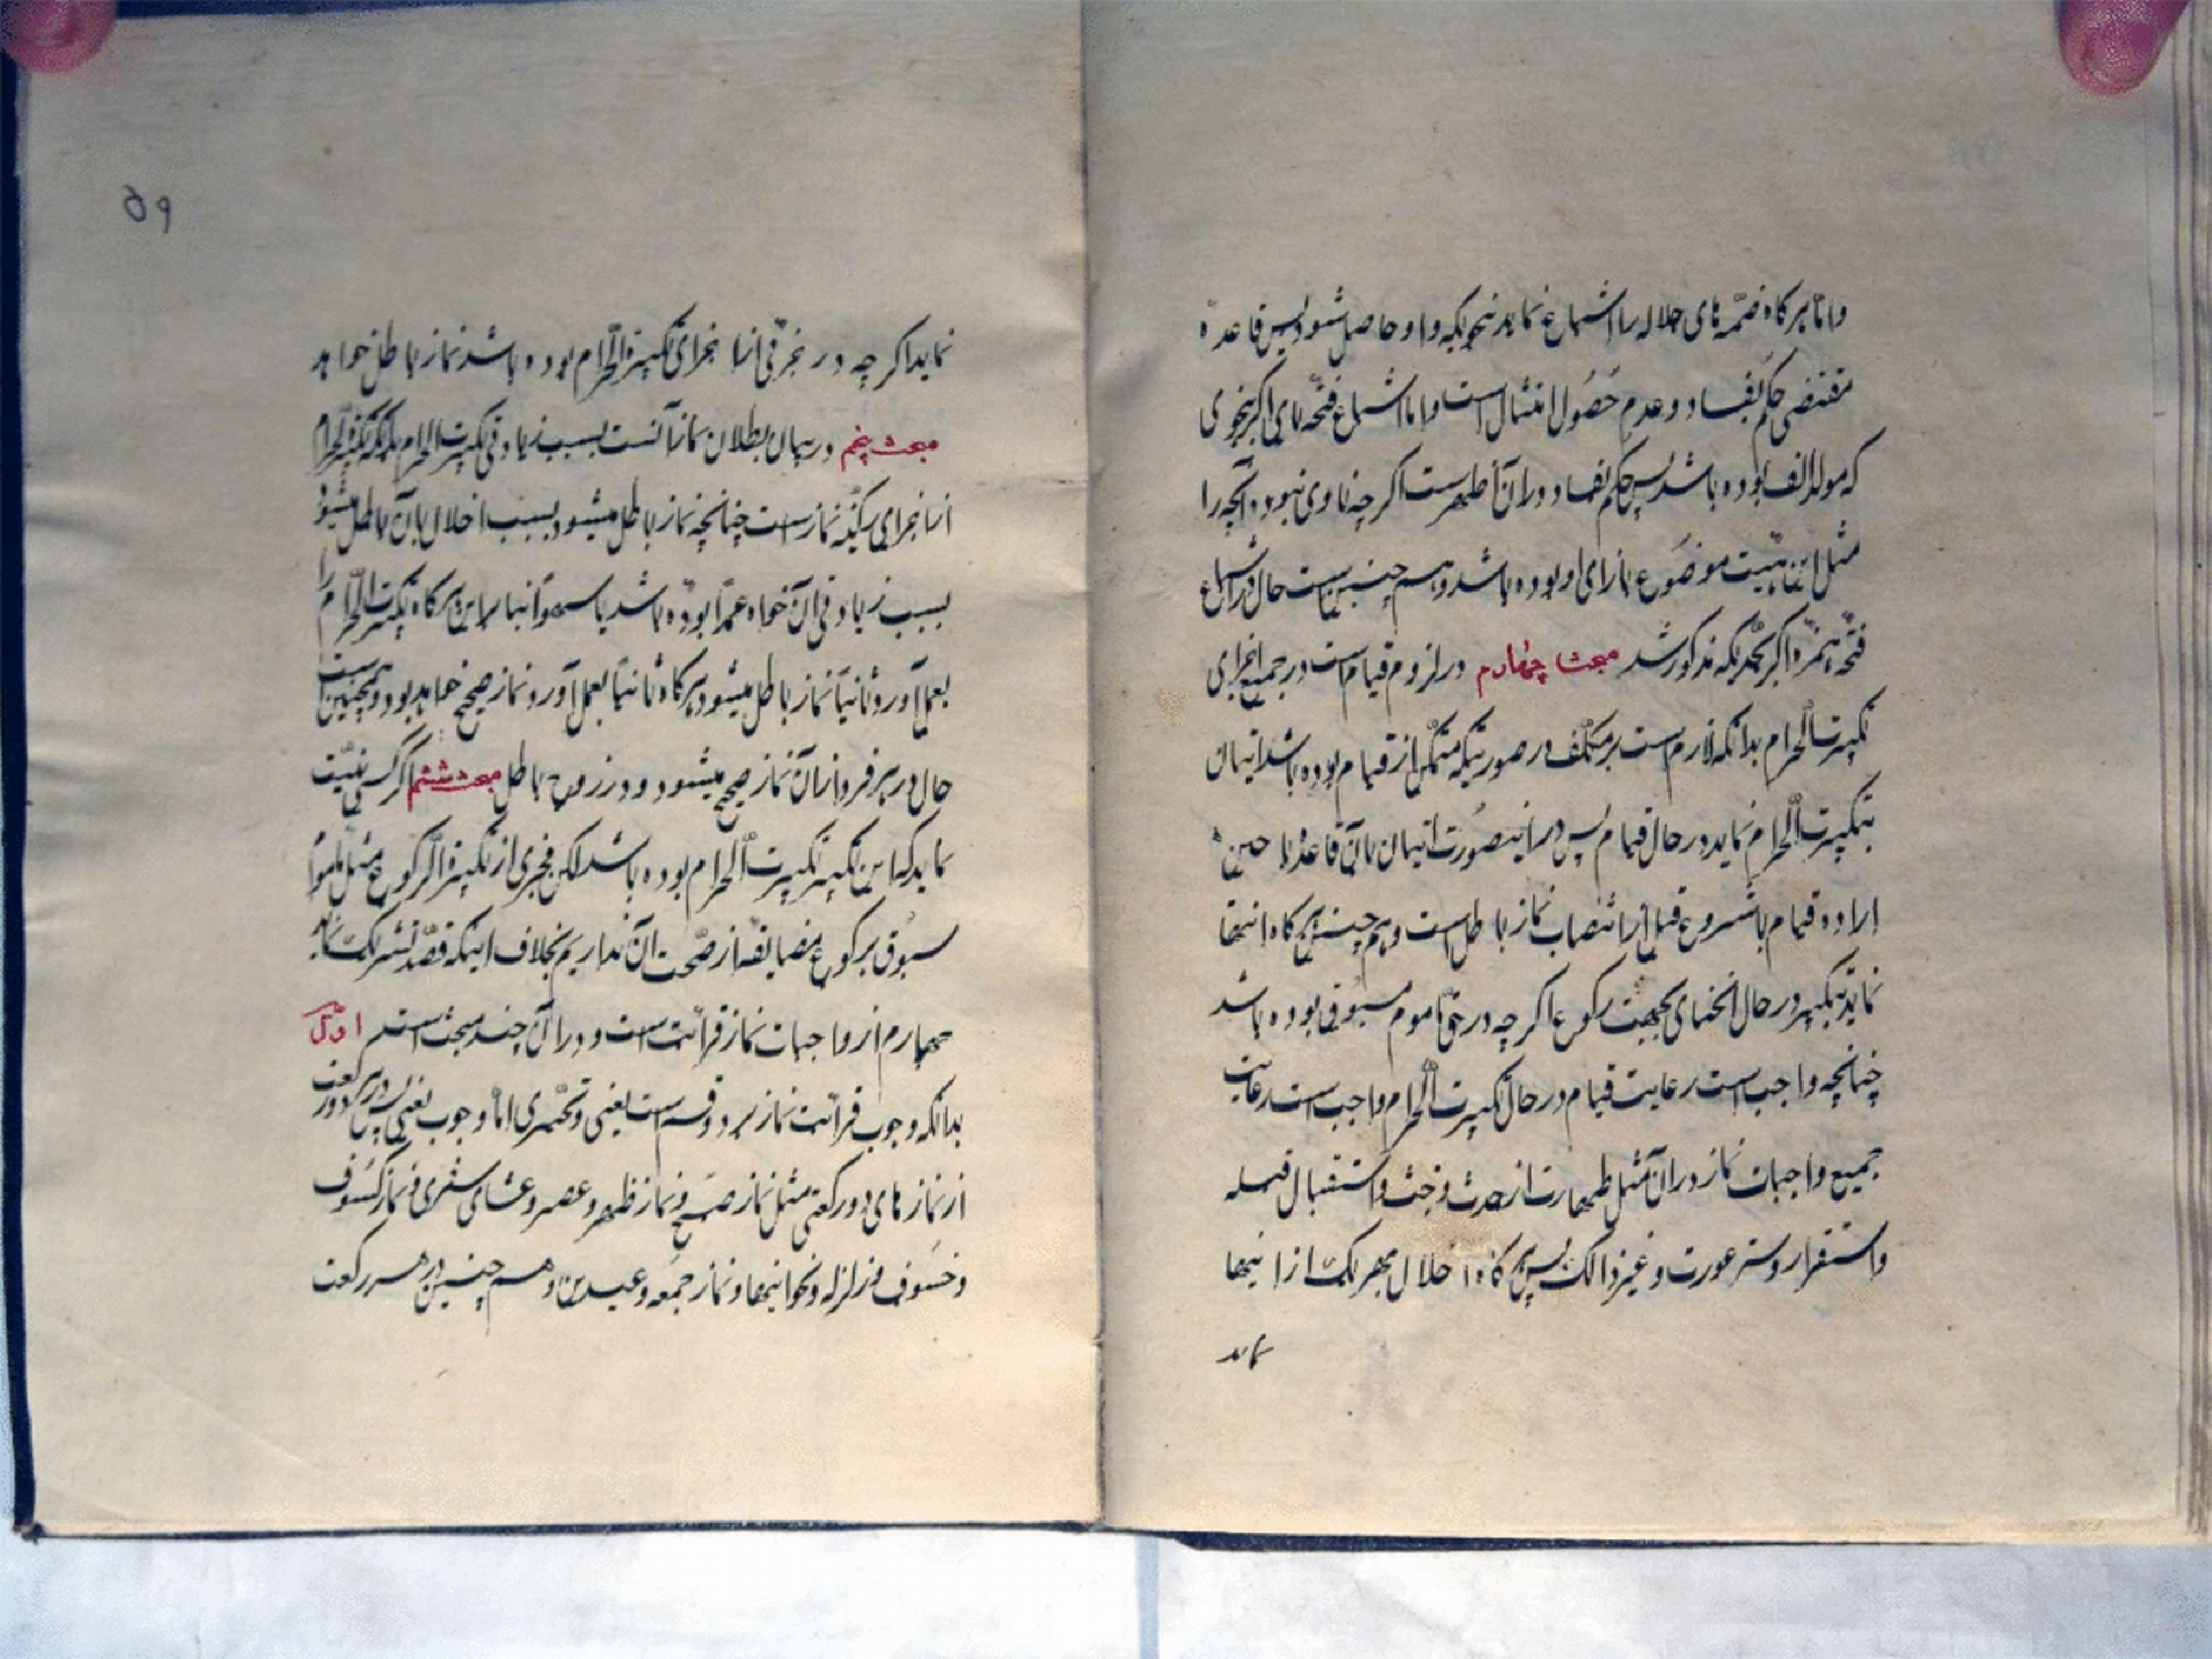 واما هرکاه ضمّهٔ های جلاله را اشباع نماید بنحویکه واو حاصل شود پس قاعده
مقتضی حکم بفساد و عدم حُصُول امتثال است و اما اشباع فتحه بای اکبر بنحوی
که مولد الف بوده باشد پس حکم بفساد در ان اظهر است اکر چه ناوی نبوده آنچه را
مثل این هیئت موضوع بازای او بوده باشد و هم چنین است حال در اشباع
فتحه همزه اکبر بنحویکه مذکور شد مبحث چهارم در لزوم قیام است در جمیع اجزای
تکبیرت الحرام بدانکه لازم است بر مکلف در صورتیکه متمکن از قیام بوده باشد اتیان
بتکبیرت الحرام نماید در حال قیام پس در اینصورت اتیان بان قاعدًا یا حین
اراده قیام یا شروع قبل از انتصاب نماز باطل است و هم چنین هرکاه انتها
نماید تکبیر در حال انحنای بجهت رکوع اکر چه در حق ماموم مسبوق بوده باشد
چنانچه واجب است رعایت قیام در حال تکبیرت الحرام واجب است رعایت
جمیع واجبات نماز در ان مثل طهارت از حدث و خبث و استقبال قبله
و استقرار و ستر عورت و غیر ذالک پس هرکاه اخلال بهر یک از اینها
نماید
۵۹
نماید اکر چه در جزئی از اجزای تکبیرة الحرام بوده باشد نماز باطل خواهد
مبحث پنجم در بیان بطلان نماز است بسبب زیادتی تکبیرت الحرام بدانکه تکبیرة الحرام
از اجزای رکنیّه نماز است چنانچه نماز باطل میشود بسبب اخلال بان باطل میشود
بسبب زیادتی ان خواه عمدًا بوده باشد یا سهوًا بنابراین هرکاه تکبیرت الحرام را
بعمل آورد ثانیًا نماز باطل میشود هرکاه ثانیًا بعمل آورد نماز صحیح خواهد بود و همچنین است
حال در هر فرد از ان نماز صحیح میشود و در زوج باطل مبحث ششم اکر کسی نیّت
نماید که این تکبیر تکبیرت الحرام بوده باشد لکن مجزی از تکبیرة الرکوع مثل ماموم
مسبوق برکوع مضایقه از صحت ان نداریم بخلاف اینکه قصد تشریک نماید
چهارم از واجبات نماز قرائت است و در ان چند مبحث است اوّل
بدانکه وجوب قرائت نماز بر دو قسم است یعنی و تخییری امّا وجوب یعنی پس در هر دو رکعت
از نماز های دو رکعتی مثل نماز صبح و نماز ظهر و عصر و عشای سفری و نماز کسوف
و خسوف و زلزله و نحو اینها و نماز جمعه و عیدین و هم چنین در هر رکعت